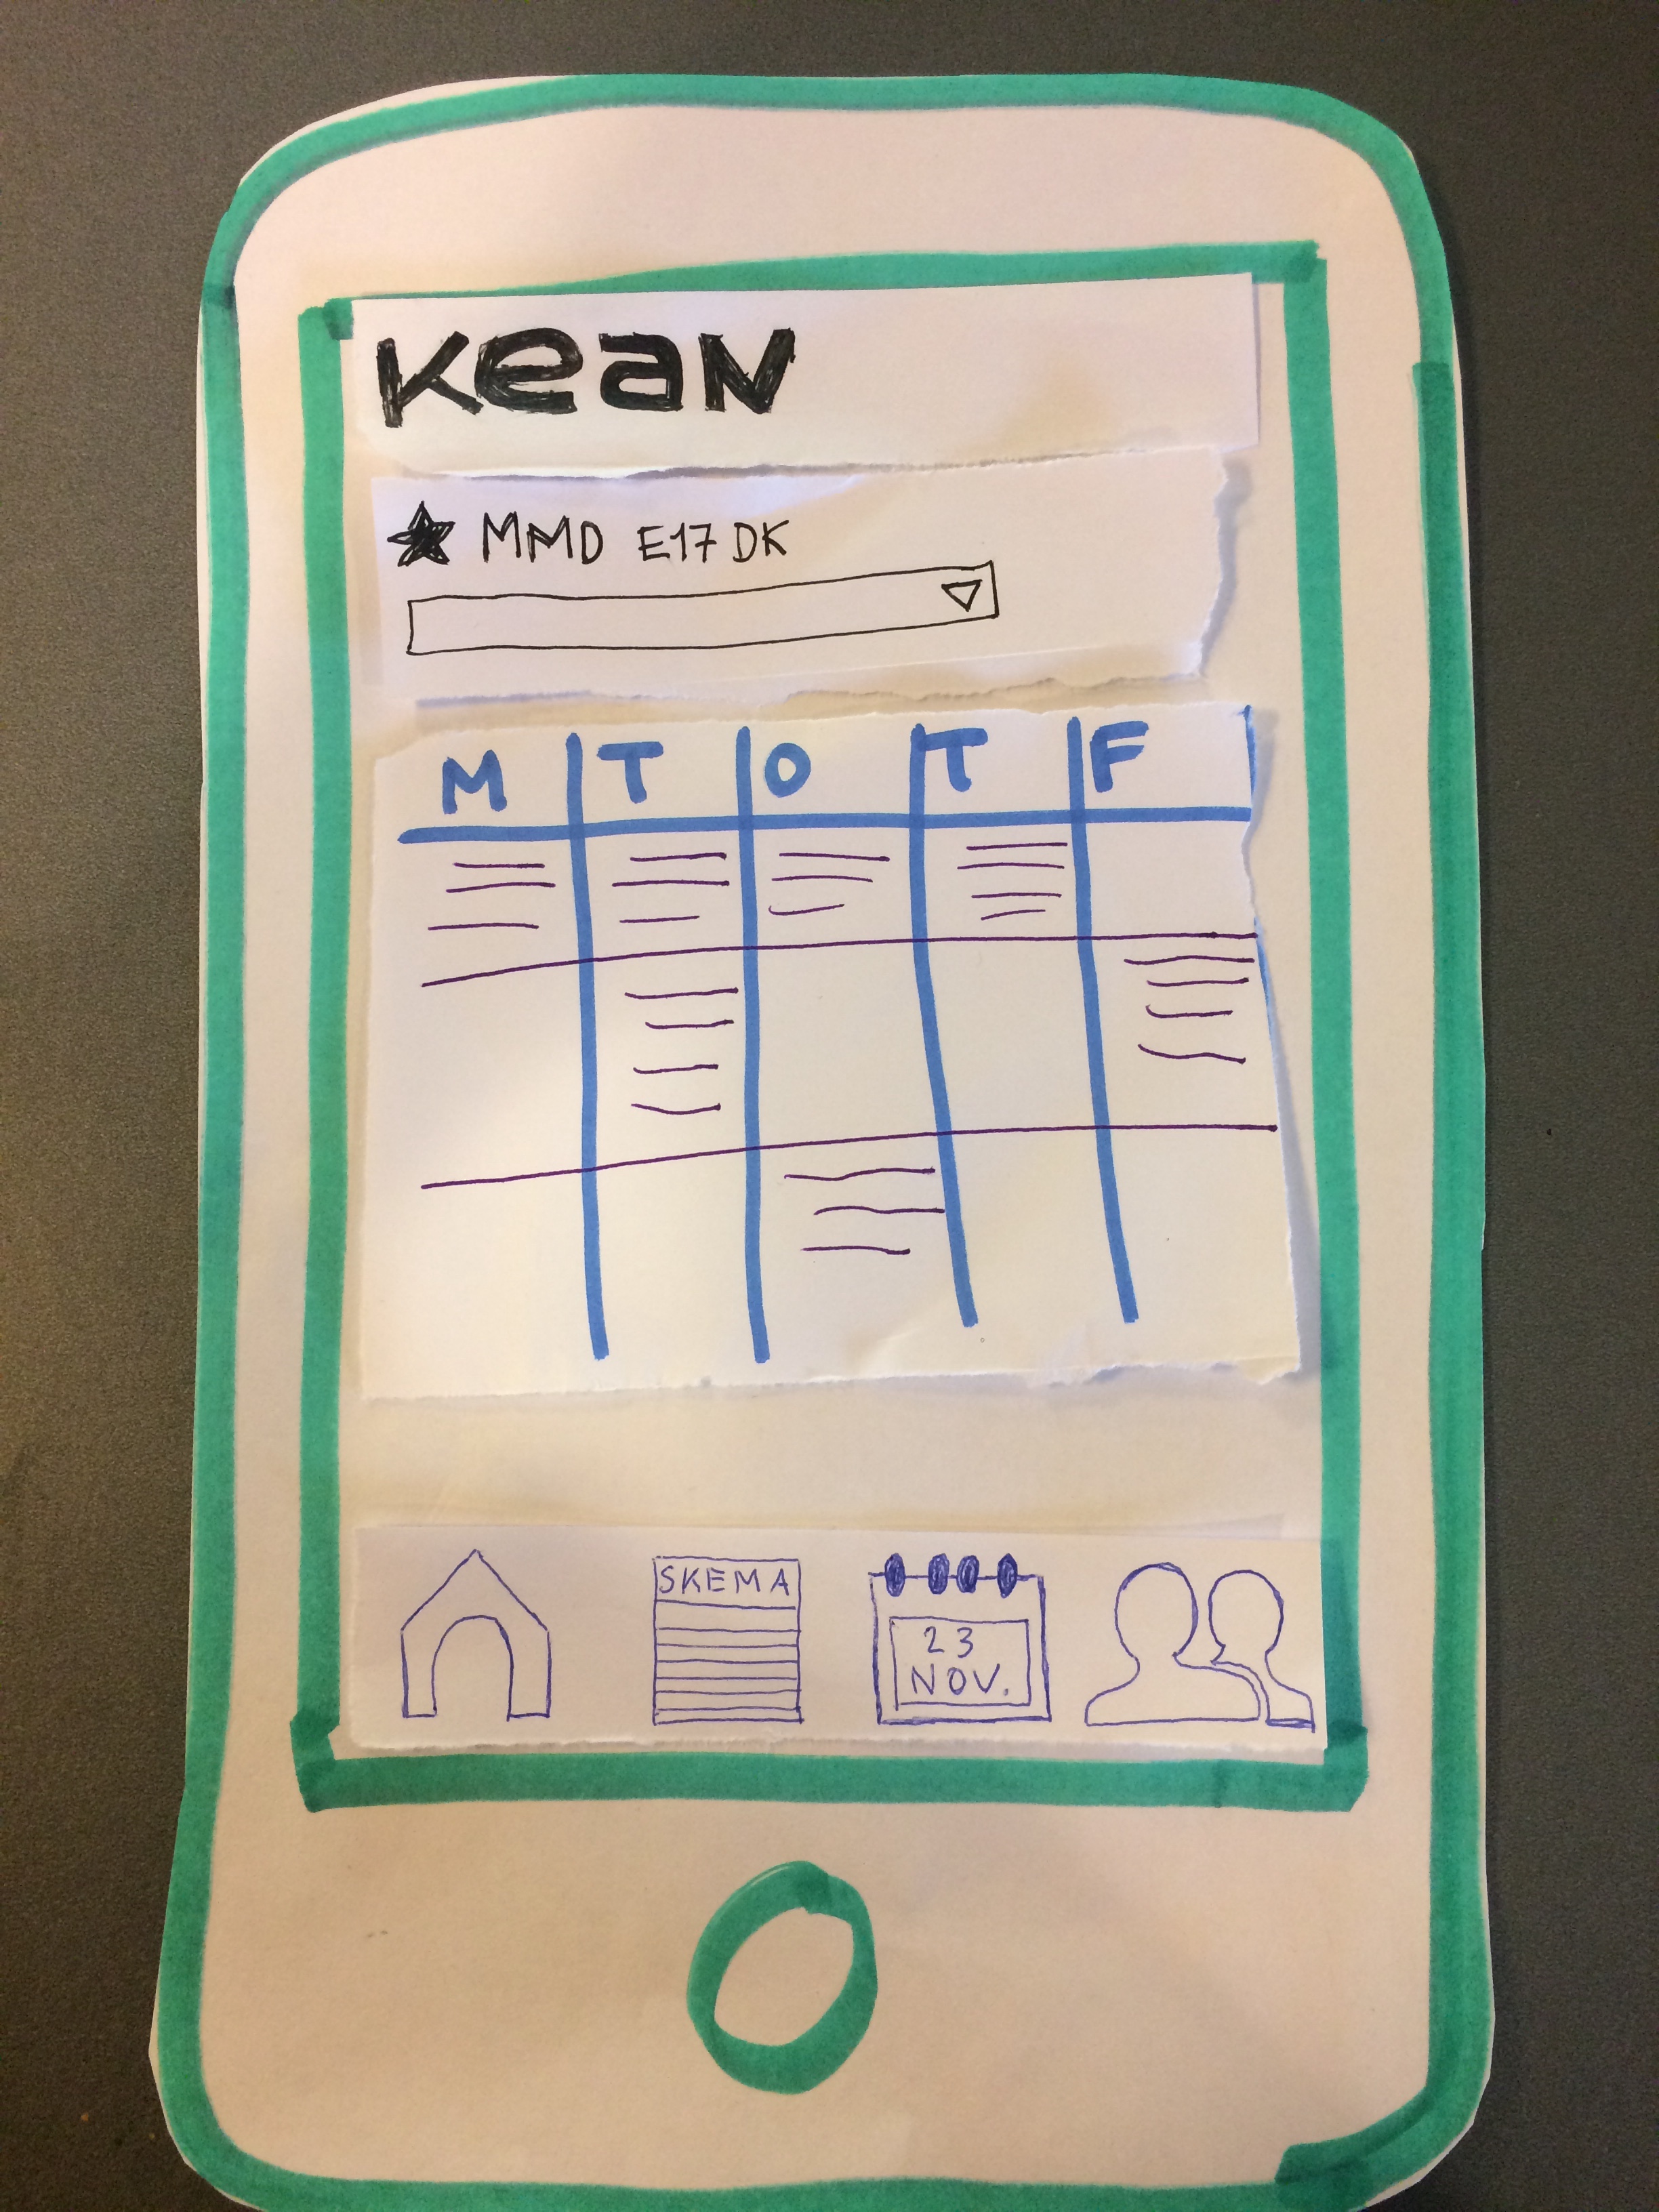 KeaN
MMD E17 DK
M T O T F
SKEMA
23
NOV.